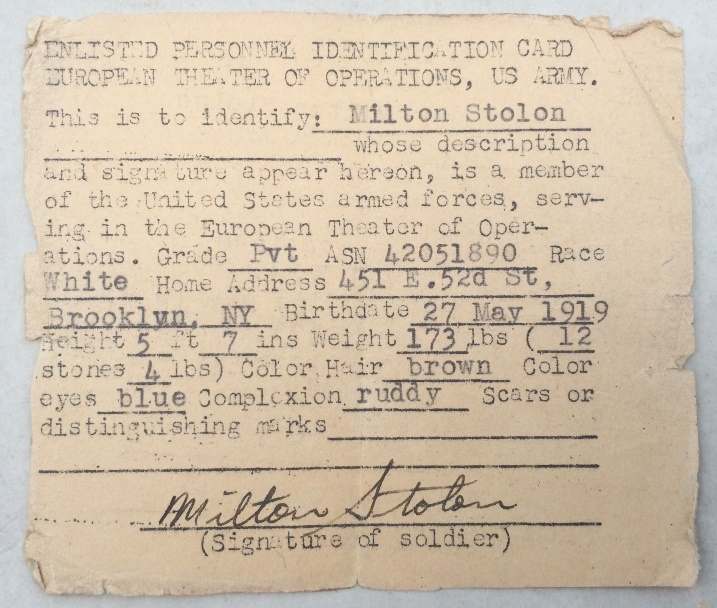 ENLISTED PERSONNEL IDENTIFICATION CARD
EUROPEAN THEATER OF OPERATIONS, US ARMY.
This is to identify: Milton Stolon
whose description
and signature appear hereon, is a member
of the United States armed forces, serv-
ing in the European Theater of Oper-
ations. Grade Pvt ASN 42051890 Race
White Home Address 451 E.52d St,
Brooklyn, NY Birthdate 27 May 1919
Height 5 ft 7 ins Weight 173 lbs ( 12
stones 4 lbs) Color Hair brown Color
eyes blue Complexion ruddy Scars or
distinguishing marks
Milton Stolon
(Signature of soldier)